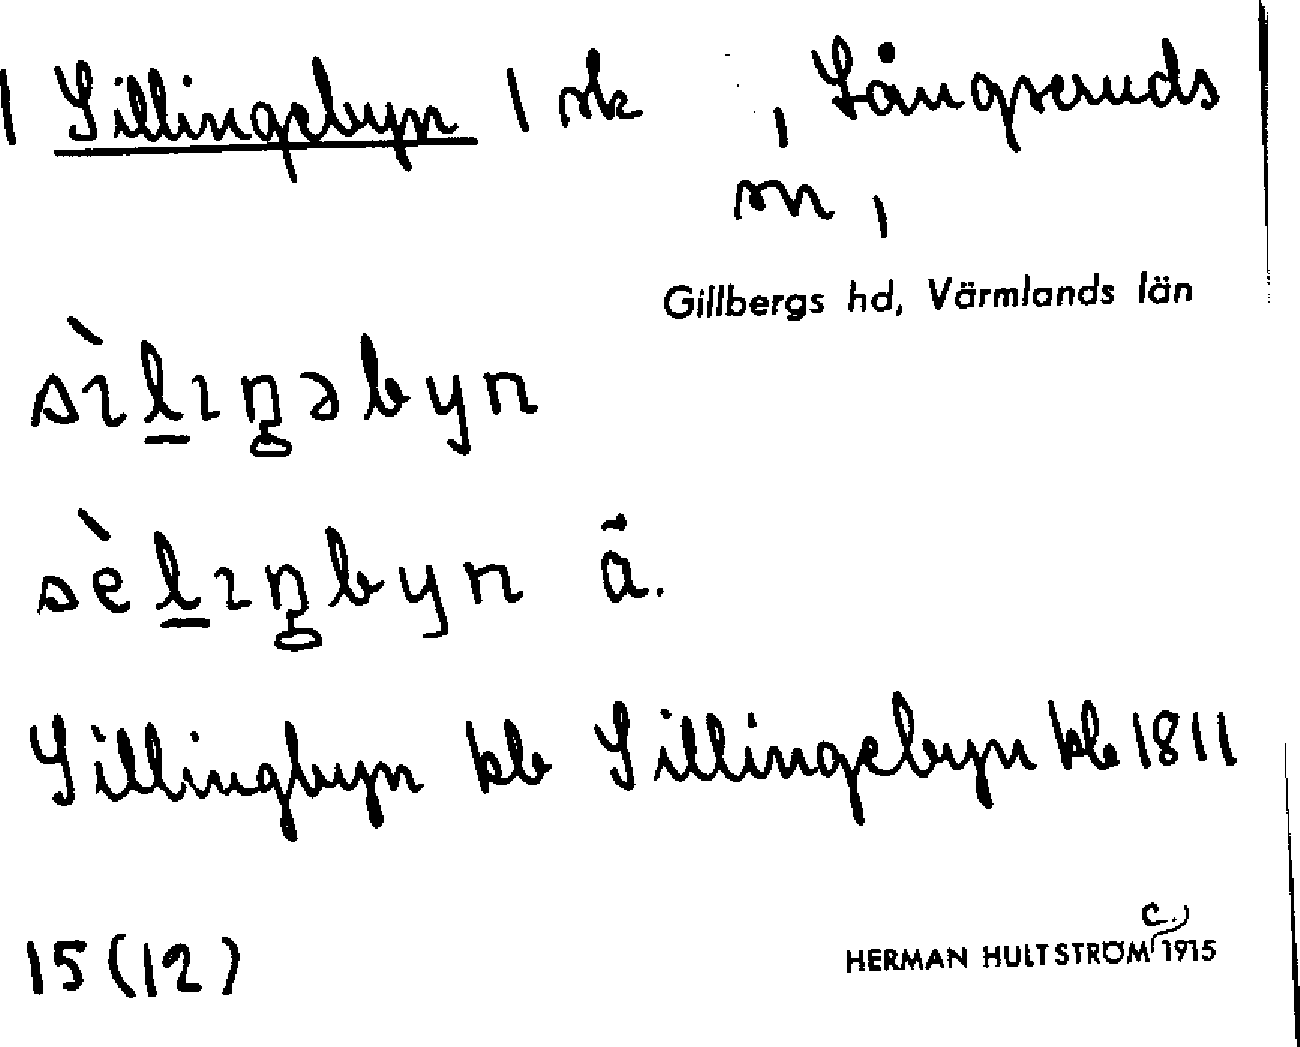 | Sillingebyn | sk , Långseruds
sn ,
Gillbergs hd, Värmlands län
sìl̲ıŋəbyn
sèl̲ıŋbyn ä.
Sillingbyn kb Sillingebyn kb 1811
15 (12)
HERMAN HULTSTRÖM c. 1915